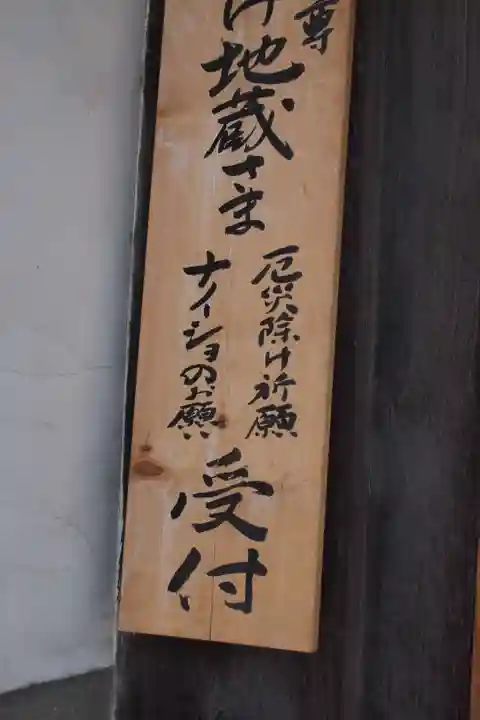 尊
け地蔵さま
厄災除け祈願
ナイショのお願い
受付